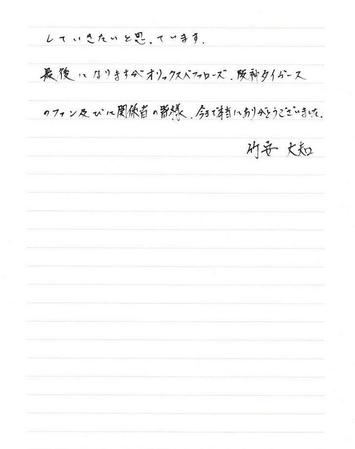 していきたいと思っています。
最後になりますがオリックスバファローズ、阪神タイガース
のファン及びに関係者の皆様、今まで本当にありがとうございました。
竹安 大知